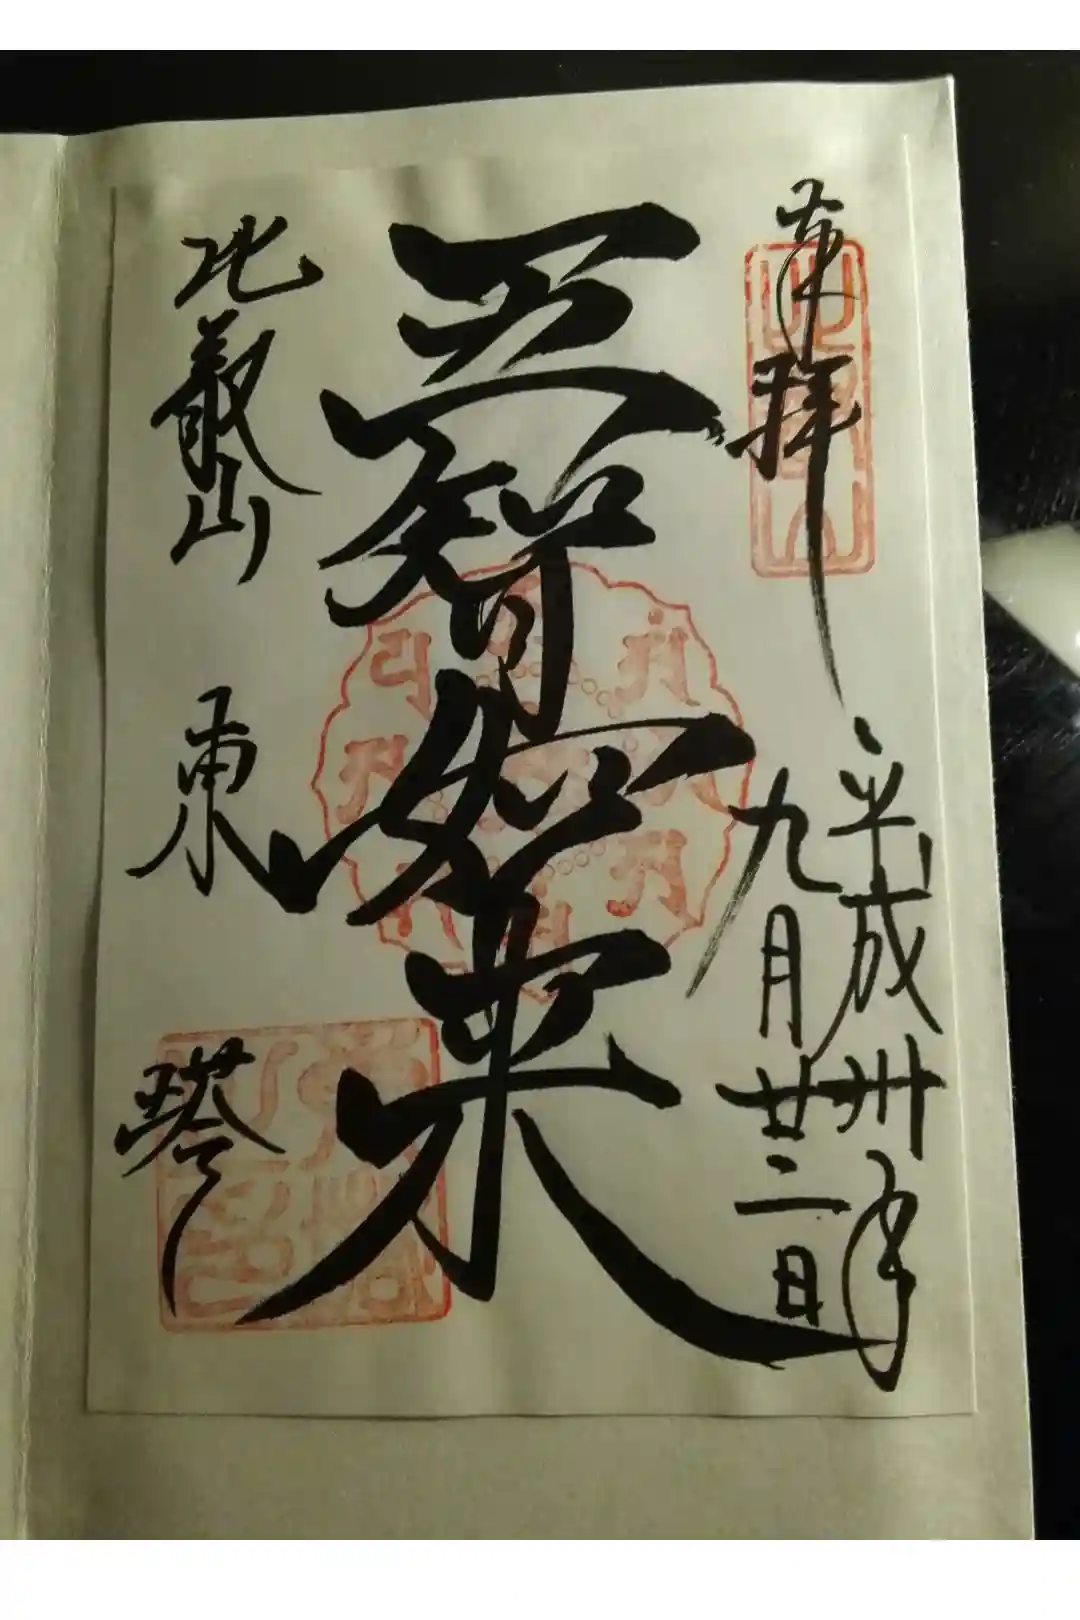 奉拝
平成卅年
九月廿二日
五智如来
比叡山
東
塔